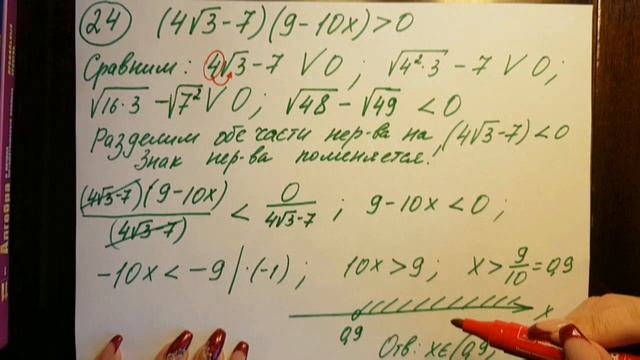 24 (4√3-7)(9-10x)>0
Сравним: 4√3-7 V 0; √4²·3 - 7 V 0;
√16·3 - √7² V 0; √48 - √49 < 0
Разделим обе части нер-ва на (4√3-7)<0
Знак нер-ва поменяется!
(4√3-7)(9-10x)/(4√3-7) < 0/(4√3-7); 9-10x<0;
-10x<-9 |·(-1); 10x>9; x>9/10=0,9
0,9 x
Отв: x∈(0,9;
Алгебра